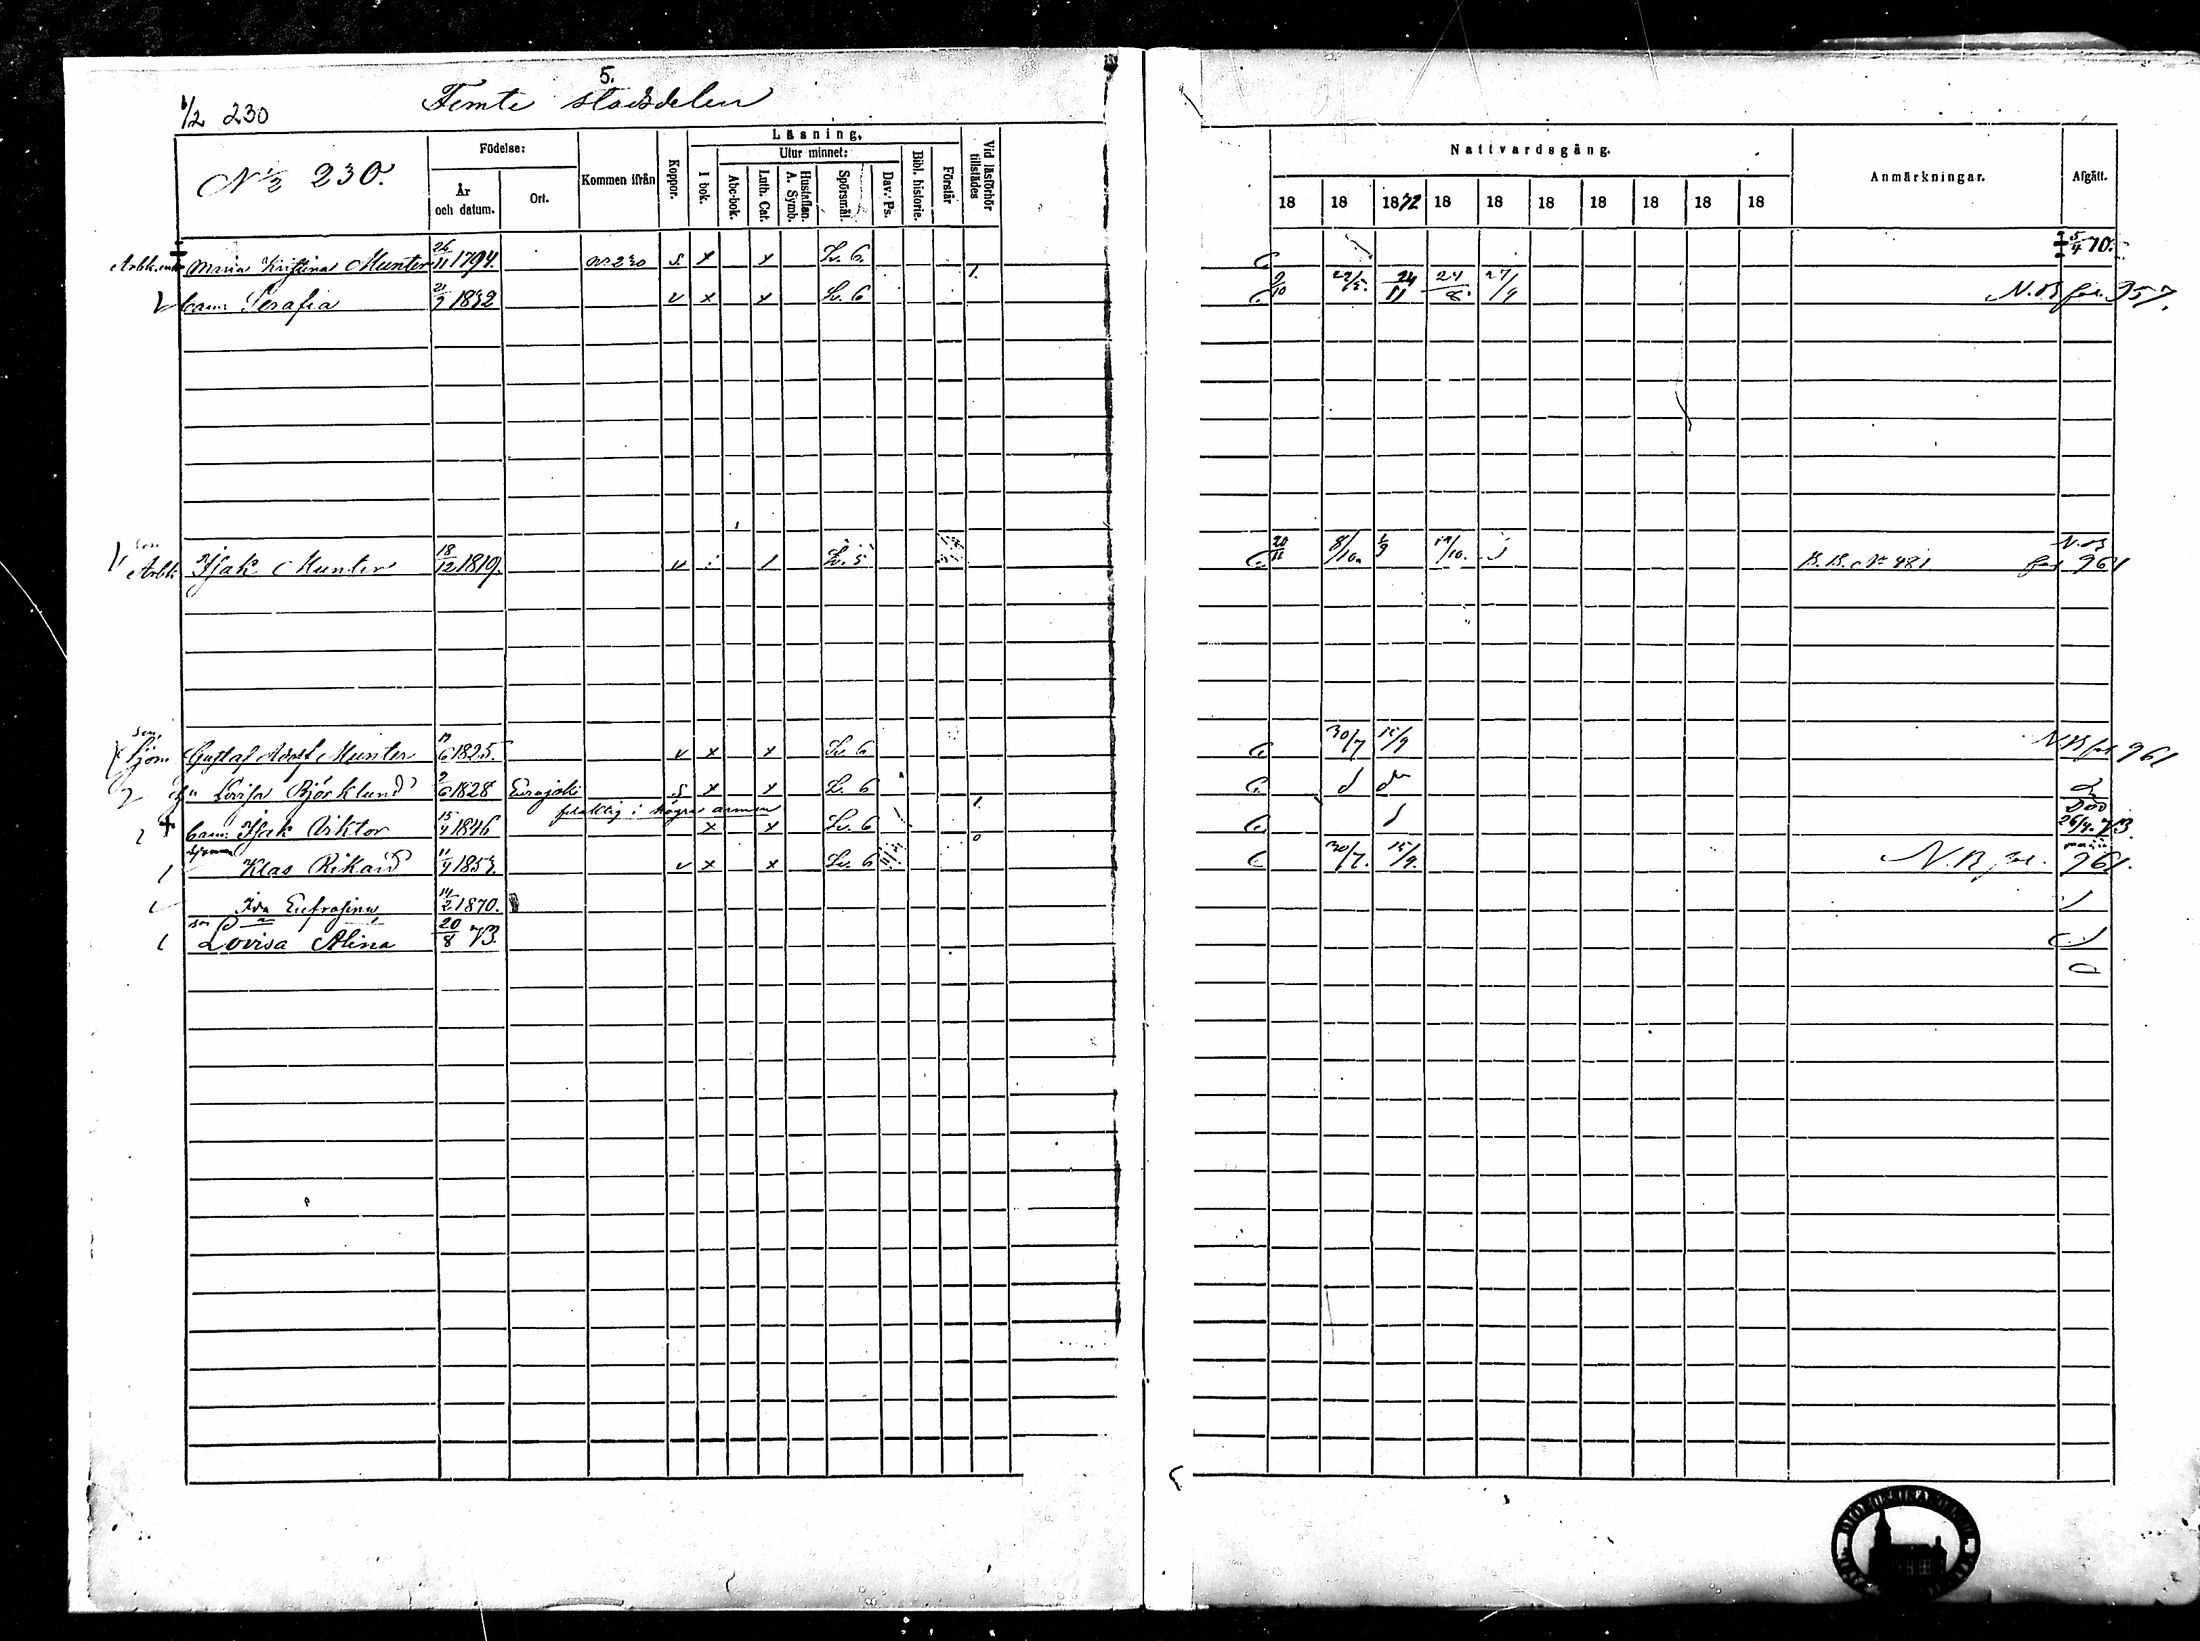 5.
1/2 230 Femte stadsdelen
N:o 1/2 230.
Födelse:
År och datum.
Ort.
Kommen ifrån
Koppor.
Läsning.
I bok.
Utur minnet:
Abc-bok.
Luth. Cat.
Hustaflan. A. Symb.
Spörsmål
Dav. Ps.
Bibl. historie.
Förstår
Vid läsförhör tillstädes
Nattvardsgång.
18 18 1872 18 18 18 18 18 18 18
Anmärkningar.
Afgått.
Maria Kristina Munter 26/11 1794. N:o 230 S x x Lv. 6. 5/4 70.
Serafia 21/7 1832 v x x Lv. 6 1. 9/10 22/5. 24/11 24/8. 27/4 N.B. fol. 357.
son
Arbk. Isak Munter 18/12 1819. v Lv. 5 20/11 8/10. 1/9 19/10. B.B. N:o 481 N.B. fol 961
son,
Sjöm Gustaf Adolf Munter 17/6 1825. v x x Lv. 6 30/7 15/9 N.B. fol. 961
h:u Lovisa Björklund 9/6 1828 Eurajoki S x x Lv. 6
felaktig i högra armen
barn: Isak Viktor 15/4 1846 x x Lv. 6 1. Död 26/4. 73.
sjöman
Klas Rikard 11/9 1853. v x x Lv. 6 0 30/7. 15/9. N.B. fol. 961.
Ida Eufrosina 14/2 1870.
Lovisa Alina 20/8 73.